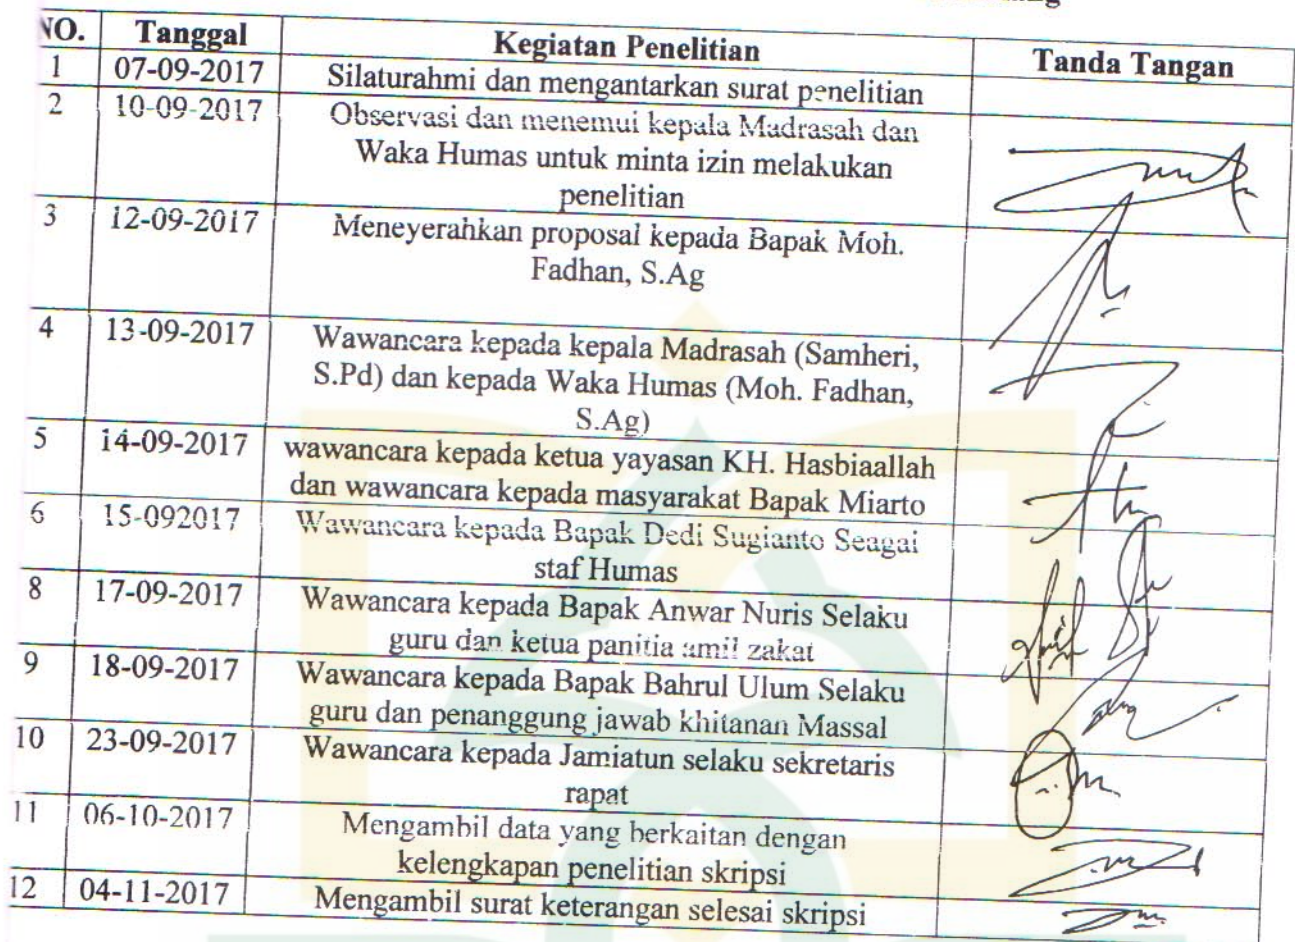 NO. Tanggal Kegiatan Penelitian Tanda Tangan
1 07-09-2017 Silaturahmi dan mengantarkan surat penelitian
2 10-09-2017 Observasi dan menemui kepala Madrasah dan
Waka Humas untuk minta izin melakukan
penelitian
3 12-09-2017 Meneyerahkan proposal kepada Bapak Moh.
Fadhan, S.Ag
4 13-09-2017 Wawancara kepada kepala Madrasah (Samheri,
S.Pd) dan kepada Waka Humas (Moh. Fadhan,
S.Ag)
5 14-09-2017 wawancara kepada ketua yayasan KH. Hasbiaallah
dan wawancara kepada masyarakat Bapak Miarto
6 15-092017 Wawancara kepada Bapak Dedi Sugianto Seagai
staf Humas
8 17-09-2017 Wawancara kepada Bapak Anwar Nuris Selaku
guru dan ketua panitia amil zakat
9 18-09-2017 Wawancara kepada Bapak Bahrul Ulum Selaku
guru dan penanggung jawab khitanan Massal
10 23-09-2017 Wawancara kepada Jamiatun selaku sekretaris
rapat
11 06-10-2017 Mengambil data yang berkaitan dengan
kelengkapan penelitian skripsi
12 04-11-2017 Mengambil surat keterangan selesai skripsi